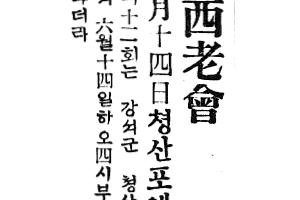 西老會
月十四日청산포에
十二회는 강석군 청산
六월十四일하오四시부
더라